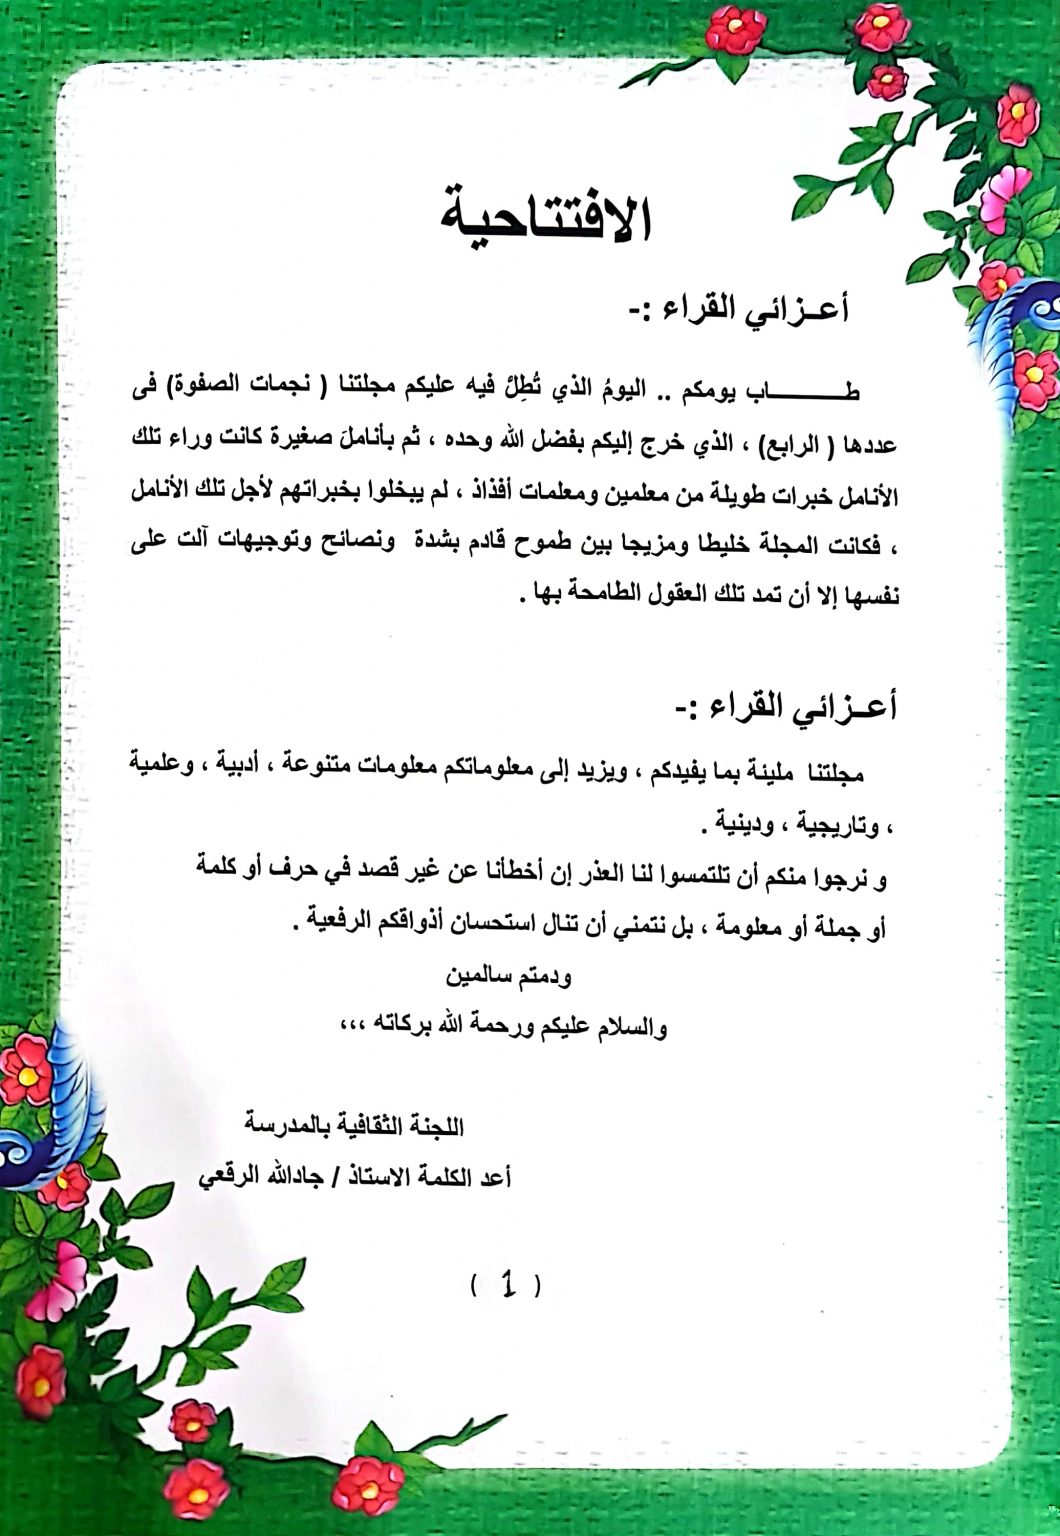 الافتتاحية
أعـزائي القراء :-
طـــــــاب يومكم .. اليومُ الذي تُطِلّ فيه عليكم مجلتنا ( نجمات الصفوة) فى
عددها ( الرابع) ، الذي خرج إليكم بفضل الله وحده ، ثم بأناملَ صغيرة كانت وراء تلك
الأنامل خبرات طويلة من معلمين ومعلمات أفذاذ ، لم يبخلوا بخبراتهم لأجل تلك الأنامل
، فكانت المجلة خليطا ومزيجا بين طموح قادم بشدة ونصائح وتوجيهات آلت على
نفسها إلا أن تمد تلك العقول الطامحة بها .
أعـزائي القراء :-
مجلتنا مليئة بما يفيدكم ، ويزيد إلى معلوماتكم معلومات متنوعة ، أدبية ، وعلمية
، وتاريجية ، ودينية .
و نرجوا منكم أن تلتمسوا لنا العذر إن أخطأنا عن غير قصد في حرف أو كلمة
أو جملة أو معلومة ، بل نتمني أن تنال استحسان أذواقكم الرفعية .
ودمتم سالمين
والسلام عليكم ورحمة الله بركاته ،،،
اللجنة الثقافية بالمدرسة
أعد الكلمة الاستاذ / جادالله الرقعي
( 1 )